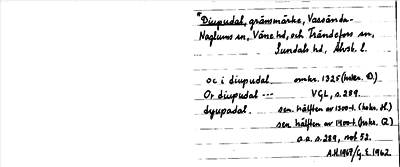 *Diupudal, gränsmärke, Vassända-
Naglums sn, Väne hd, och Trändefors sn,
Sundals hd, Älvsb. l.
oc i diupudal omkr. 1325 (hskr. D.)
Or diupudal --- VGL, s. 289.
dyupadal. sen. hälften av 1300-t. (hskr. H.)
sen. hälften av 1400-t. (hskr. Q.)
a.a. s. 289, not 52.
A.H. 1967/G.E. 1962